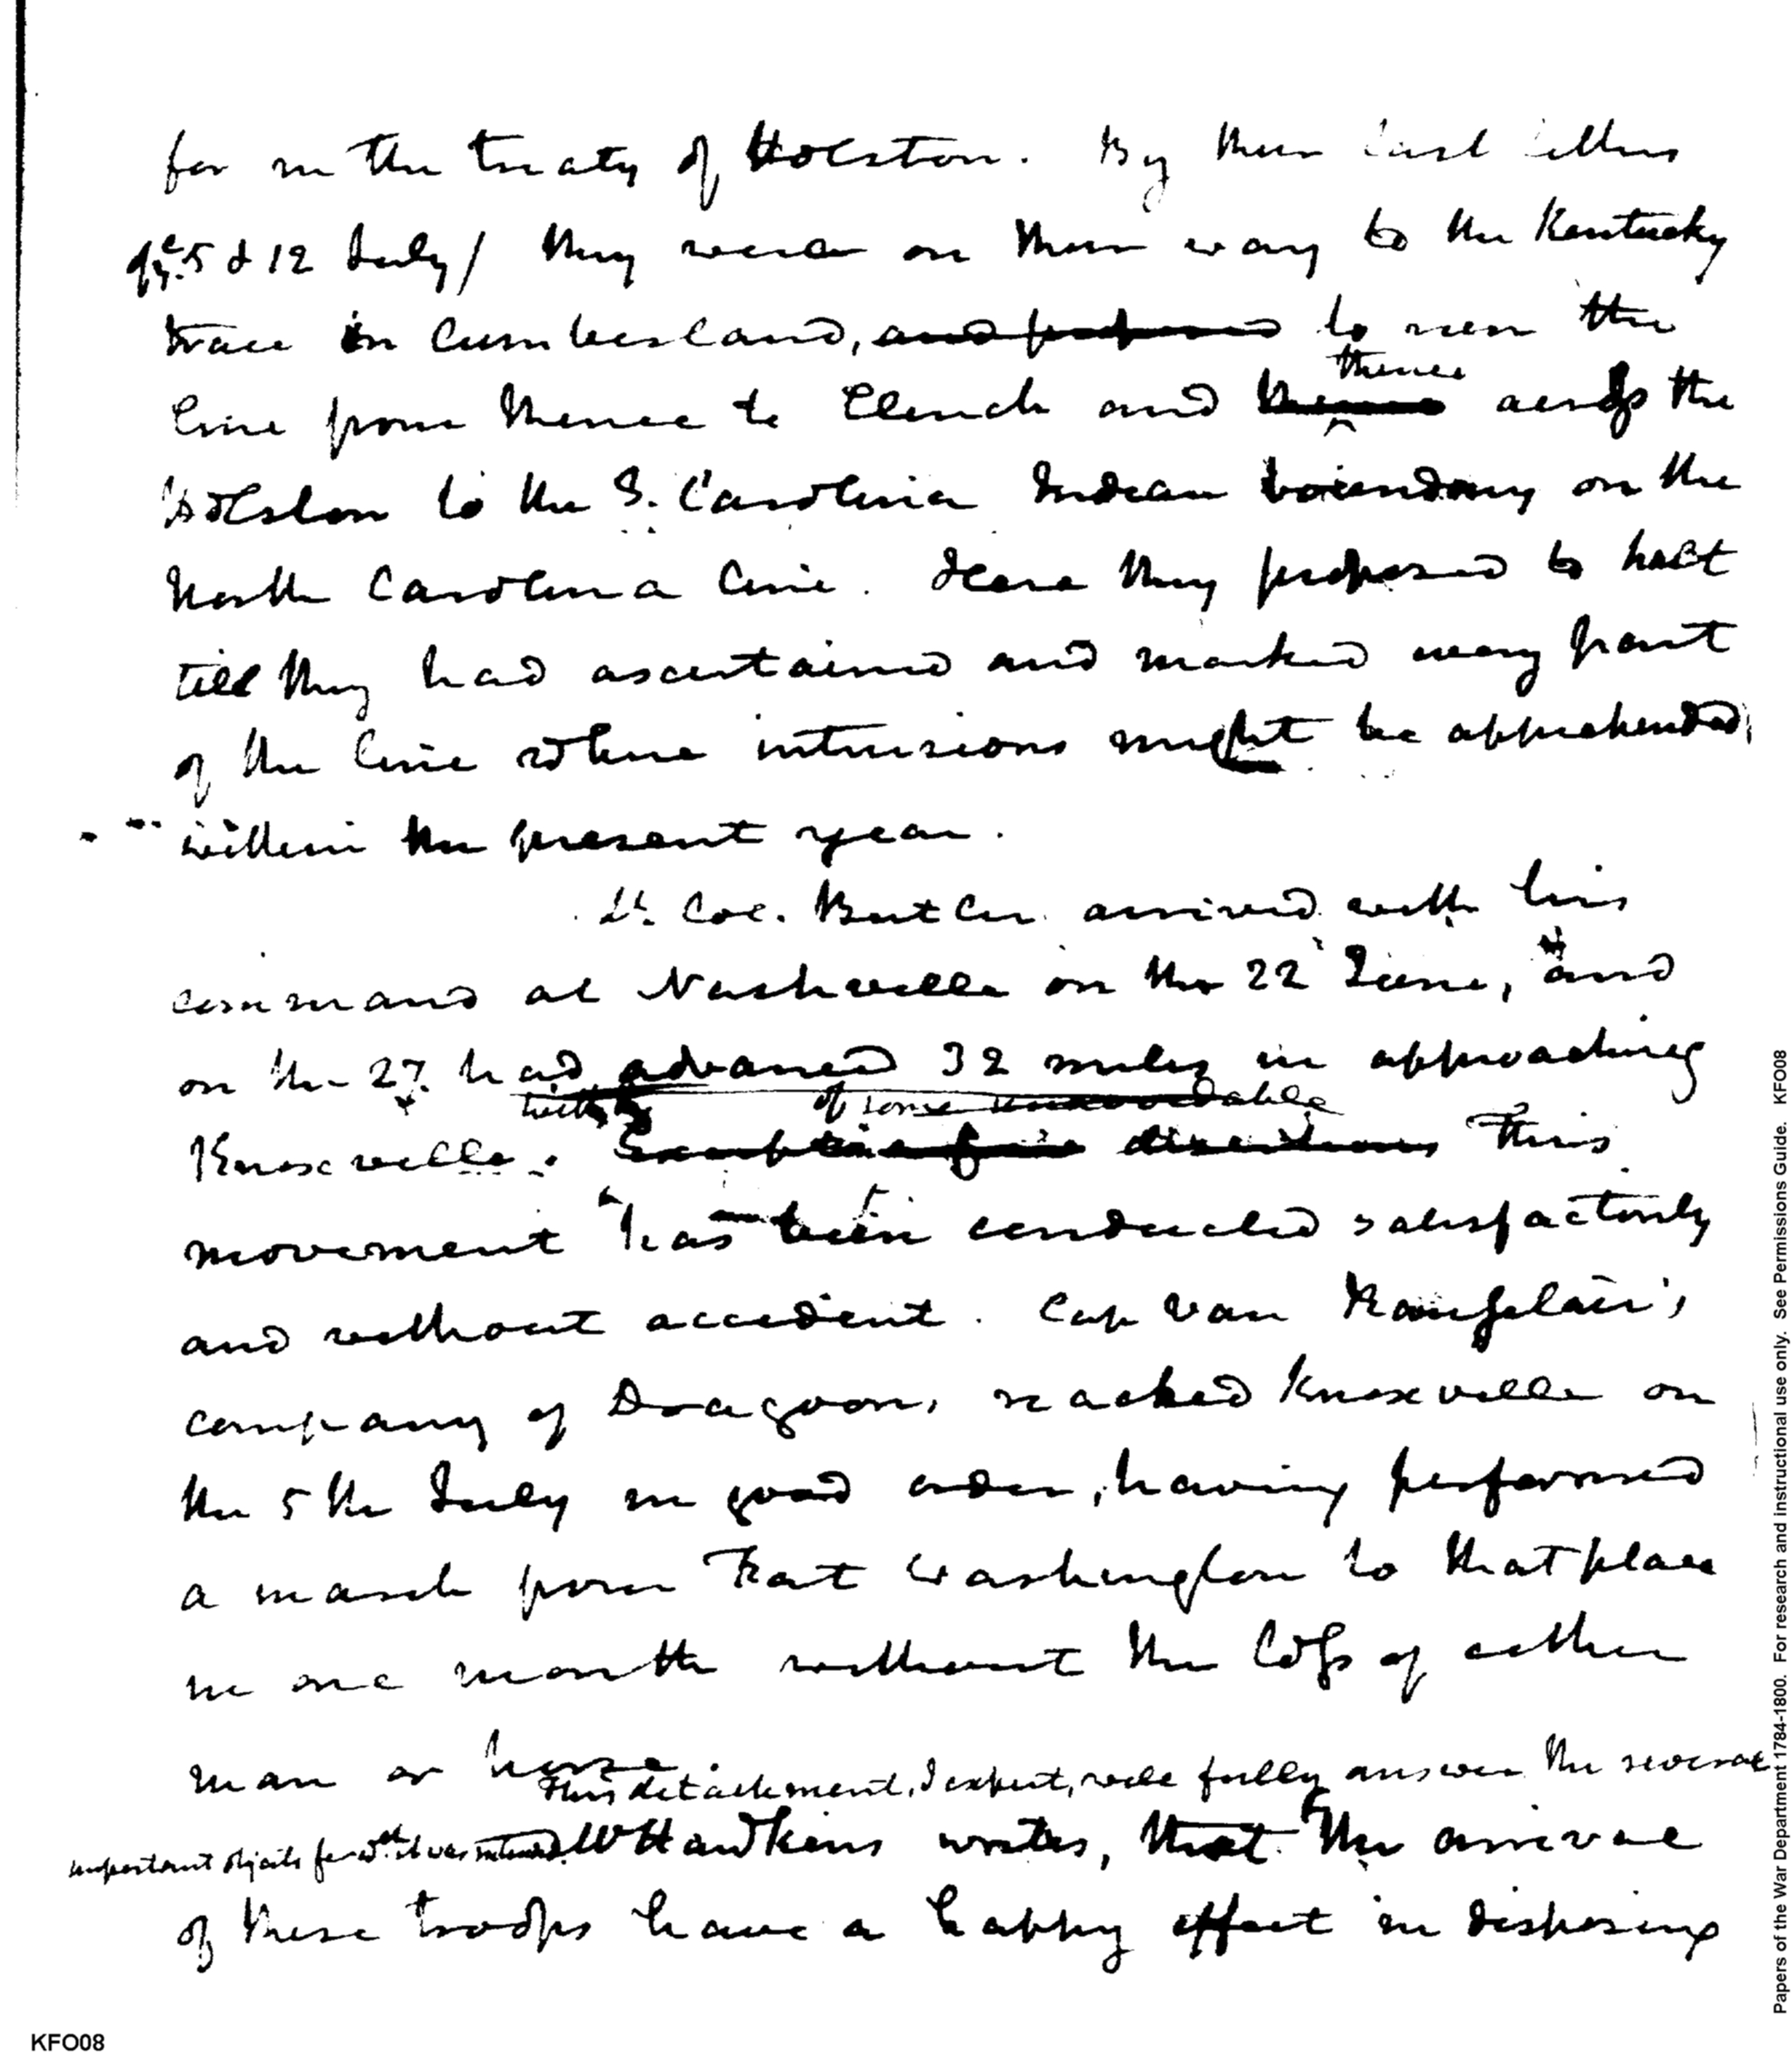 for in the treaty of Holston. By their last letters
of ye. 5 & 12 July/ they were on their way to the Kentucky
trace in Cumberland, and proposed to run the
thence
line from thence to Clinch and thence across the
Holston to the S. Carolina Indian boundary on the
North Carolina line. Here they proposed to halt
till they had ascertained and marked every part
of the line where intrusions might be apprehended,
within the present year.
Lt. Col. Butler arrived with his
command at Nashville on the 22 June, and
on the 27. had advanced 32 miles in approaching
with of some unavoidable
Knoxville. This
movement has been conducted satisfactorily
and without accident. Cap Van Ranselair's
company of Dragoons reached Knoxville on
the 5th July in good order, having performed
a march from Fort Washington to that place
in one month without the loss of either
man or horse.
This detachement, I expect, will fully answer the several
important objects for wch. it was intended. Mr Hawkins writes, that the arrival
of these troops have a happy effect in disposing
KFO08
Papers of the War Department 1784-1800. For research and instructional use only. See Permissions Guide. KFO08